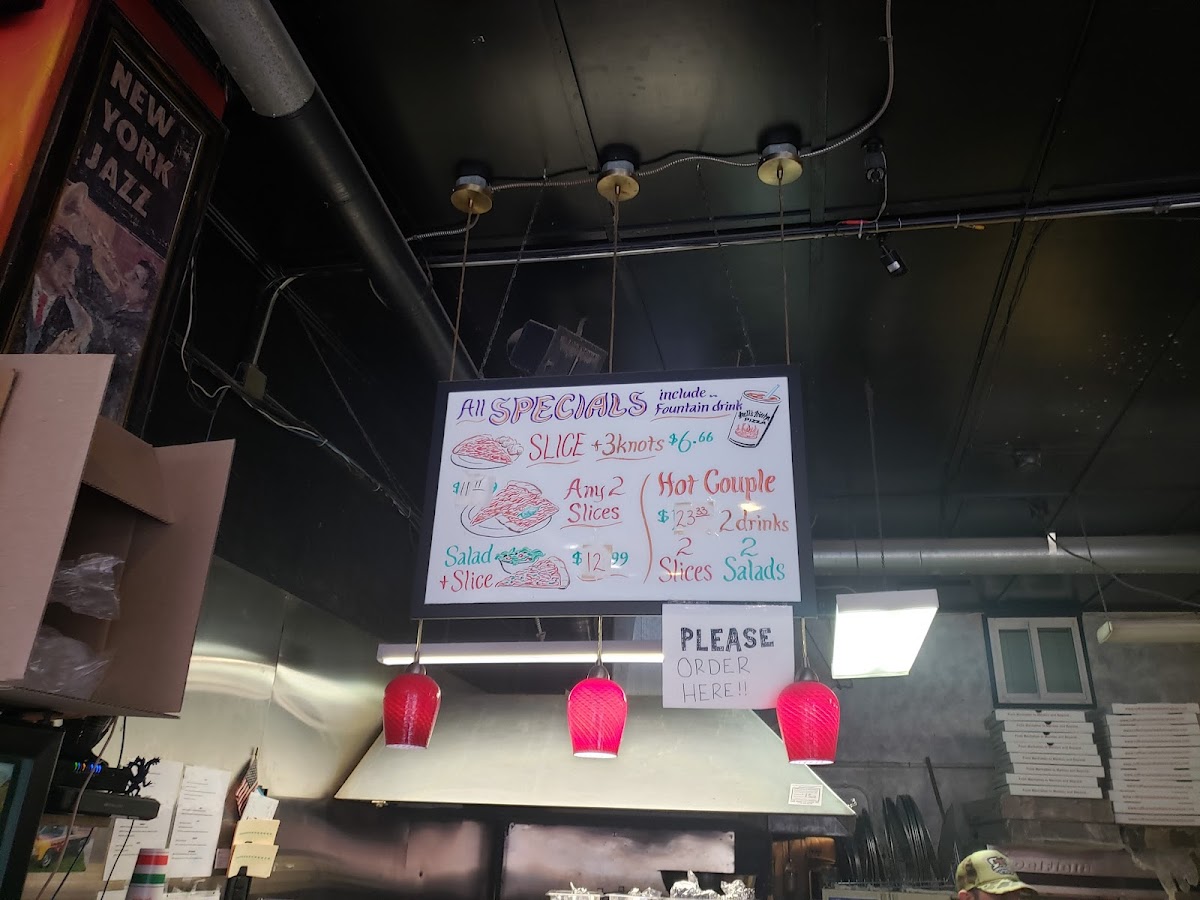 NEW
YORK
JAZZ
All SPECIALS include..
Fountain drink
PIZZA
SLICE +3knots $6.66
$11.11
Any 2
Slices
Salad
+ Slice
$12.99
Hot Couple
$23.33 2 drinks
2 2
Slices Salads
PLEASE
ORDER
HERE!!